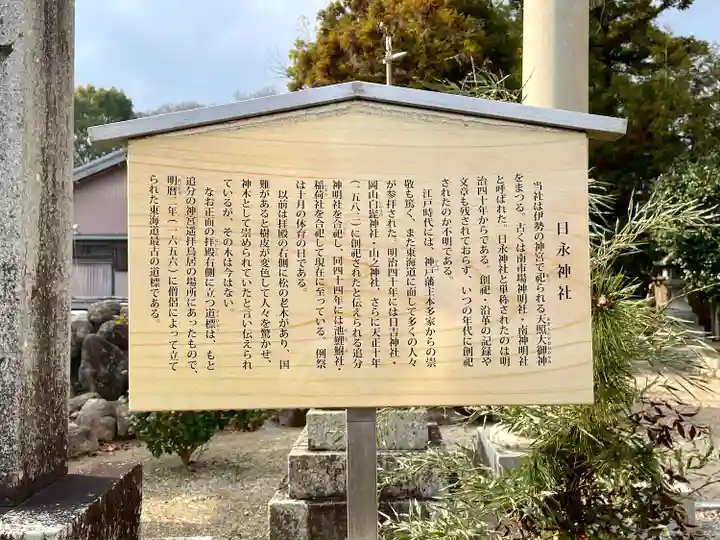 日永神社
当社は伊勢の神宮で祀られる天照大御神
をまつる。古くは南市場神明社・南神明社
と呼ばれた。日永神社と単称されたのは明
治四十年からである。創祀・沿革の記録や
文章も残されておらず、いつの年代に創祀
されたのか不明である。
江戸時代には、神戸藩主本多家からの崇
敬も篤く、また東海道に面して多くの人々
が参拝された。明治四十年には日吉神社・
岡山白髭神社・山之神社、さらに天正十年
(一五八二)に創祀されたと伝えられる追分
神明社を合祀し、同四十四年には池鯉鮒社・
稲荷社を合祀して現在に至っている。例祭
は十月の体育の日である。
以前は拝殿の右側に松の老木があり、国
難があると樹皮が変色して人々を驚かせ、
神木として崇められていたと言い伝えられ
ているが、その木は今はない。
なお正面の拝殿右側に立つ道標は、もと
追分の神宮遥拝鳥居の場所にあったもので、
明暦二年(一六五六)に僧侶によって立て
られた東海道最古の道標である。